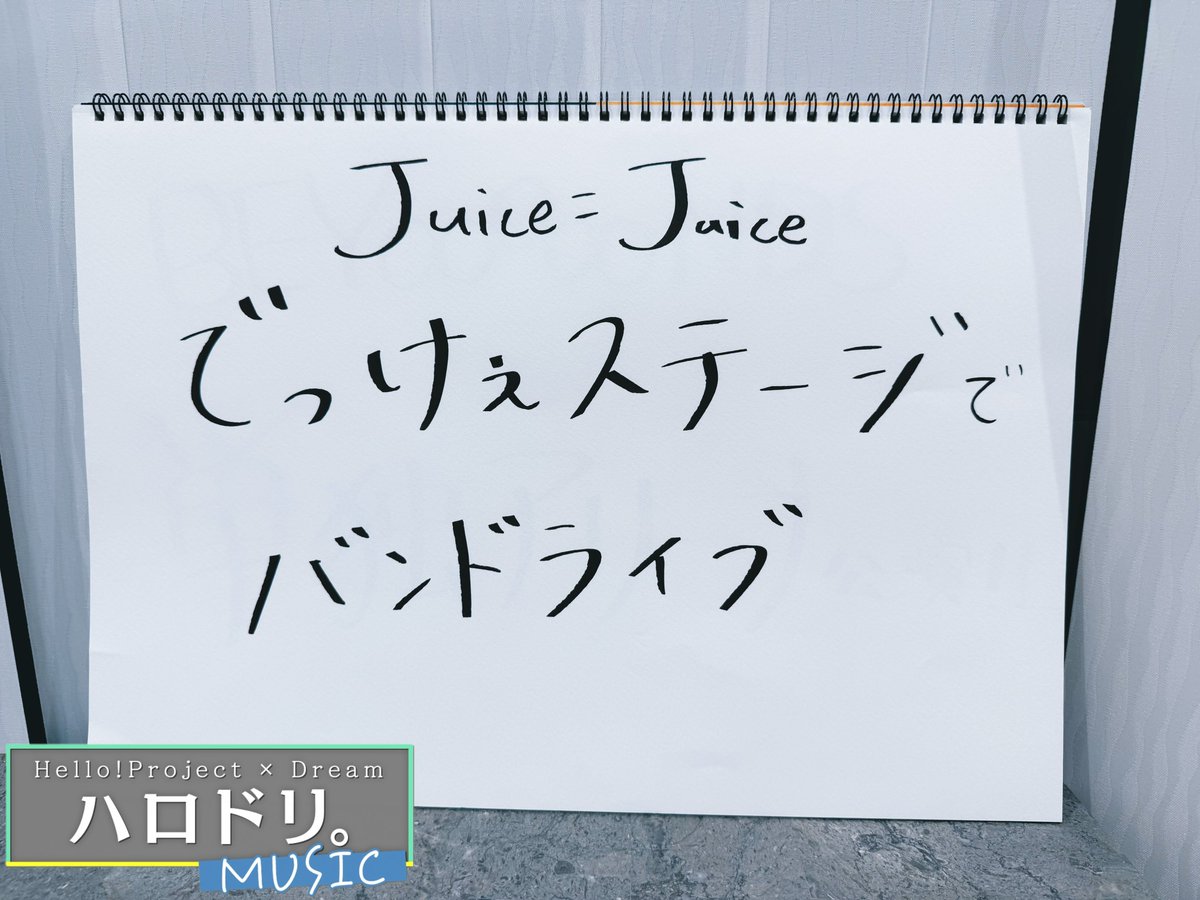 Juice=Juice
でっけぇステージで
バンドライブ
Hello!Project × Dream
ハロドリ。
MUSIC